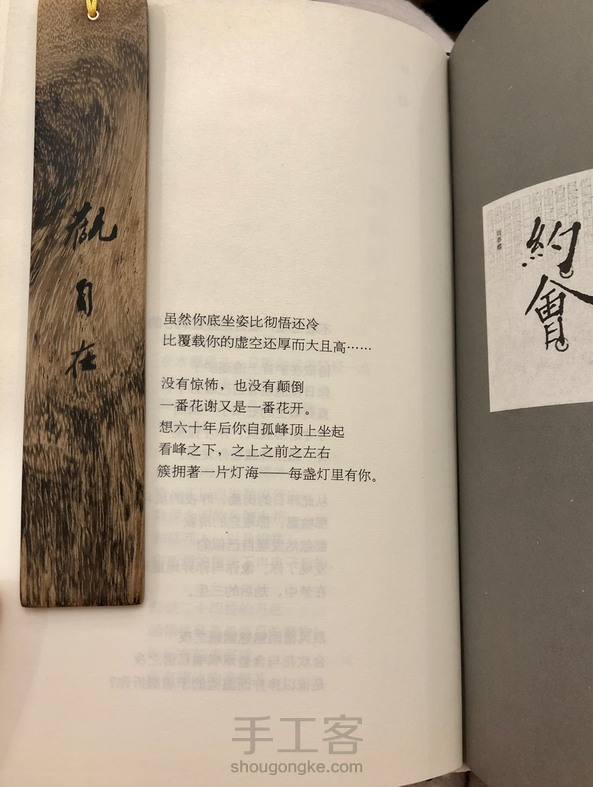 觀自在
虽然你底坐姿比彻悟还冷
比覆载你的虚空还厚而大且高……
没有惊怖，也没有颠倒
一番花谢又是一番花开。
想六十年后你自孤峰顶上坐起
看峰之下，之上之前之左右
簇拥著一片灯海——每盏灯里有你。
約會
周夢蝶
手工客
shougongke.com